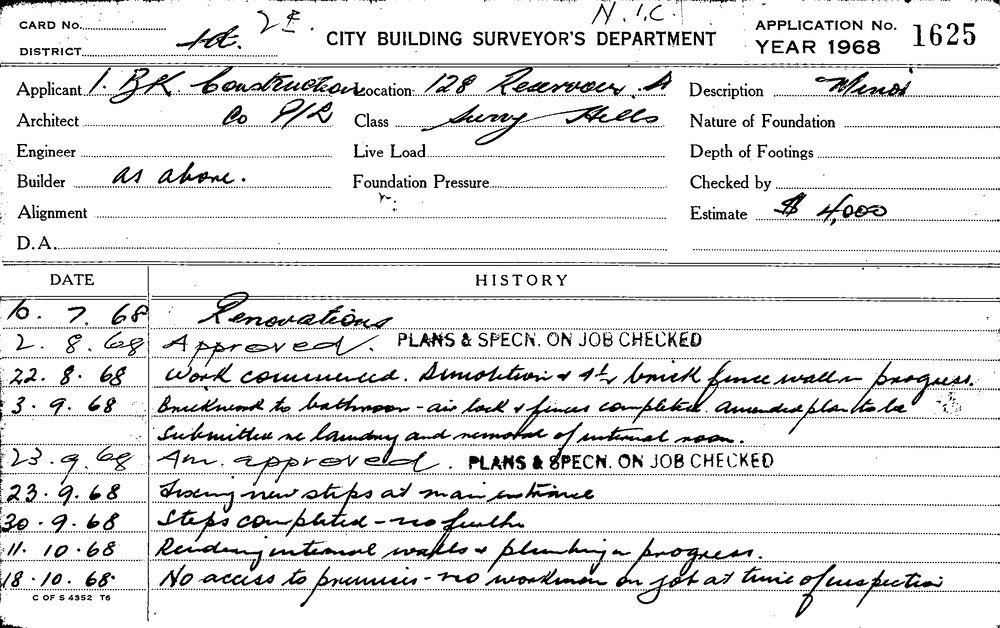 N.I.C.
CARD No. 2E. CITY BUILDING SURVEYOR'S DEPARTMENT APPLICATION No. 1625
DISTRICT YEAR 1968
Applicant 1. BK Construction Location 128 Reservoir St Description Minor
Architect Co P/L Class Surry Hills Nature of Foundation
Engineer Live Load Depth of Footings
Builder as above. Foundation Pressure Checked by
Alignment Estimate $ 4,000
D.A.
DATE HISTORY
10. 7. 68 Renovations
2. 8. 68 Approved. PLANS & SPECN. ON JOB CHECKED
22. 8. 68 Work commenced. Demolition & 4½ brick fence wall in progress.
3. 9. 68 Brickwork to bathroom - air lock & fences completed. Amended plan to be
submitted re laundry and removal of internal room.
23. 9. 68 Am. approved. PLANS & SPECN. ON JOB CHECKED
23. 9. 68 Fixing new steps at main entrance
30. 9. 68 Steps completed - no further
11. 10. 68 Rendering internal walls & plumbing in progress.
18. 10. 68. No access to premises - no workmen on job at time of inspection
C OF S 4352 T6